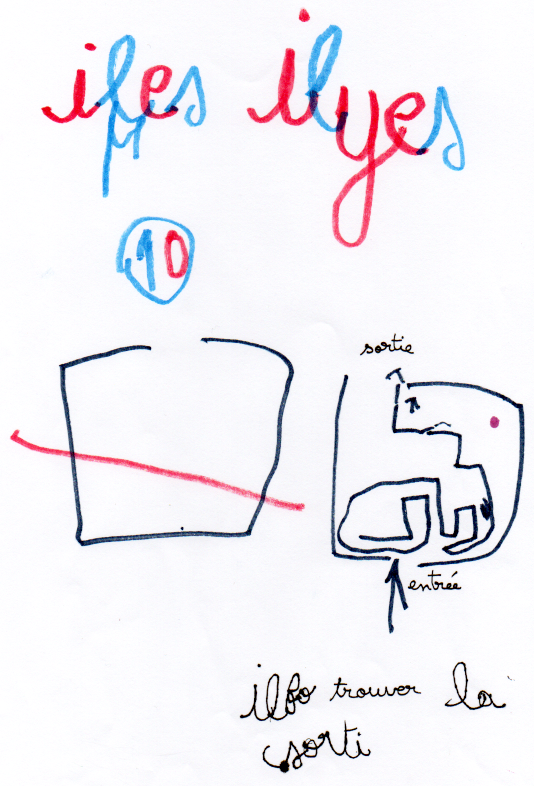 iles ilyes
10
sortie
entrée
ilfo trouver la
sorti